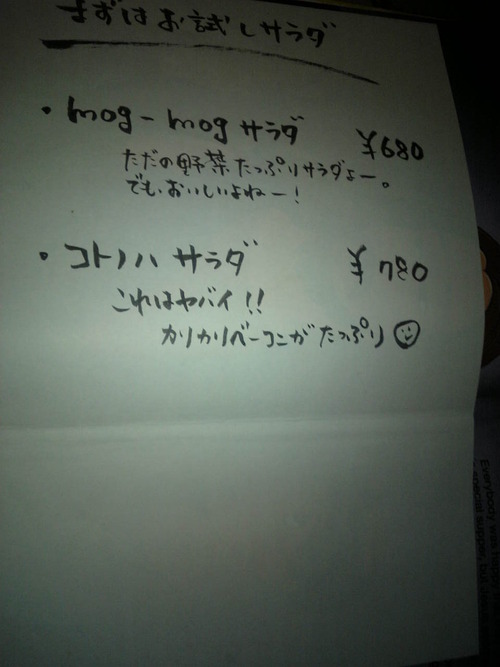 まずはお試しサラダ
・mog-mogサラダ ¥680
ただの野菜たっぷりサラダよー。
でも、おいしいよねー！
・コトノハ サラダ ¥780
これはヤバイ！！
カリカリベーコンがたっぷり
Everybody was
special supper, but